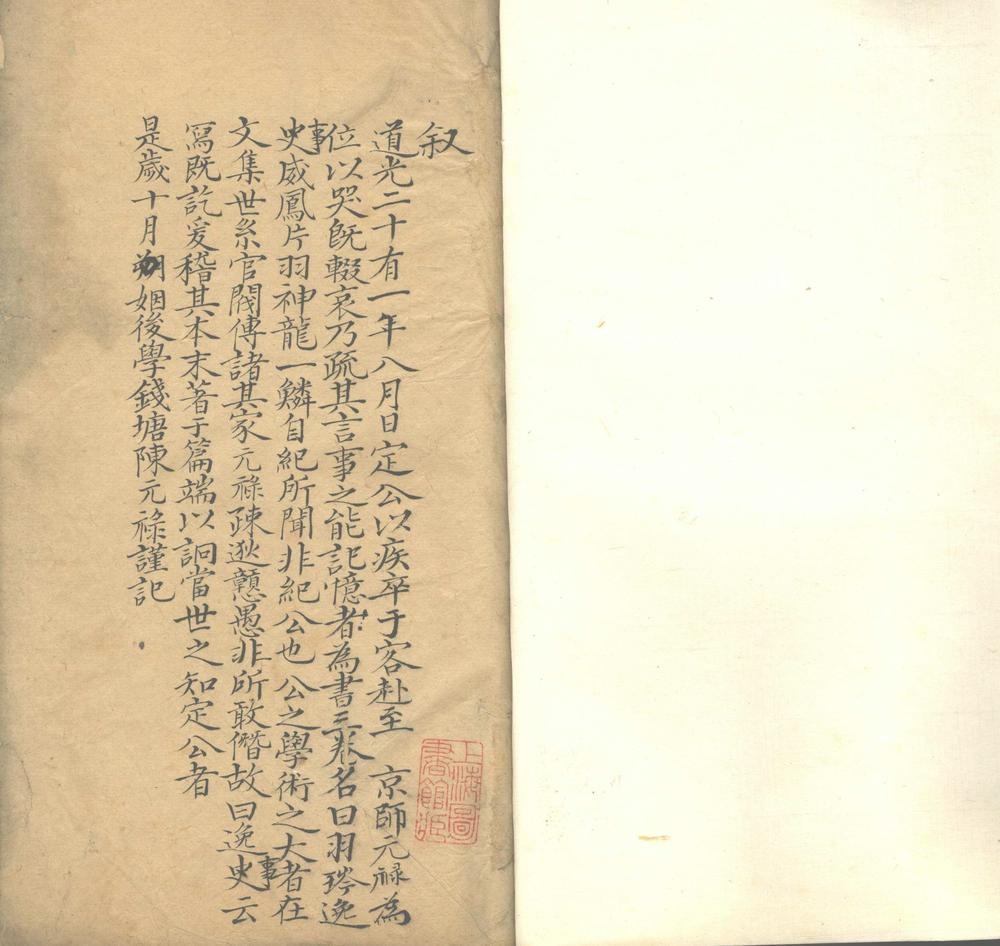 叙
道光二十有一年八月日定公以疾卒于客赴至　京師元祿為
位以哭旣輟哀乃疏其言事之能記憶者為書三卷名曰羽琌逸
事史威鳳片羽神龍一鱗自紀所聞非紀公也公之學術之大者在
文集世系官閥傳諸其家元祿疎逖戇愚非所敢僭故曰逸事史云
寫旣訖爰稽其本末著于篇端以詗當世之知定公者
是歲十月朔姻後學錢塘陳元祿謹記
上海圖
書館藏